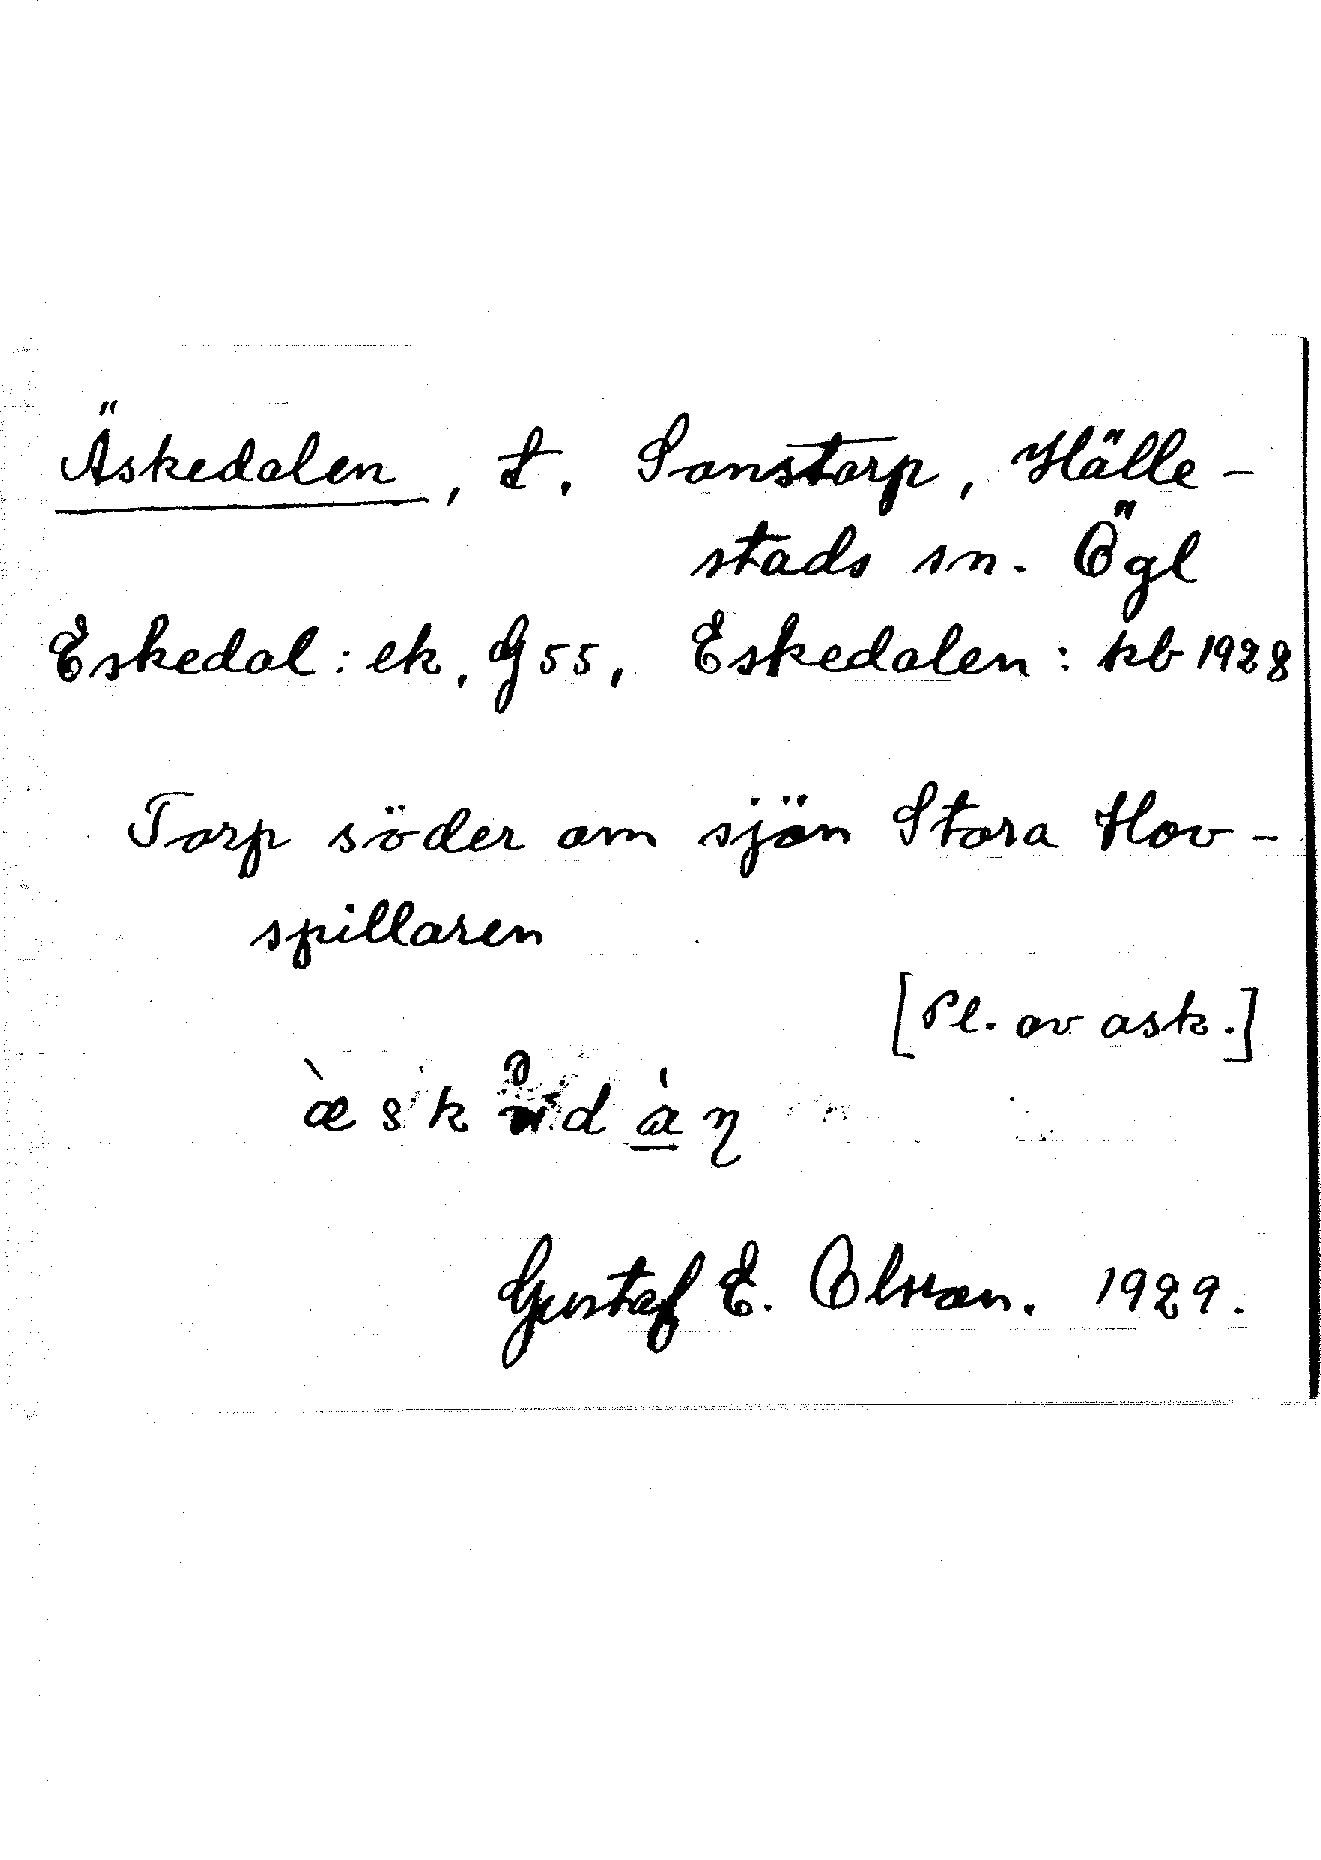 Äskedalen, t. Sonstorp, Hälle-
stads sn. Ögl
Eskedal: ek. G 55, Eskedalen: kb 1928
Torp söder om sjön Stora Hov-
spillaren
[Pl. av ask.]
Gustaf E. Olsson. 1929.